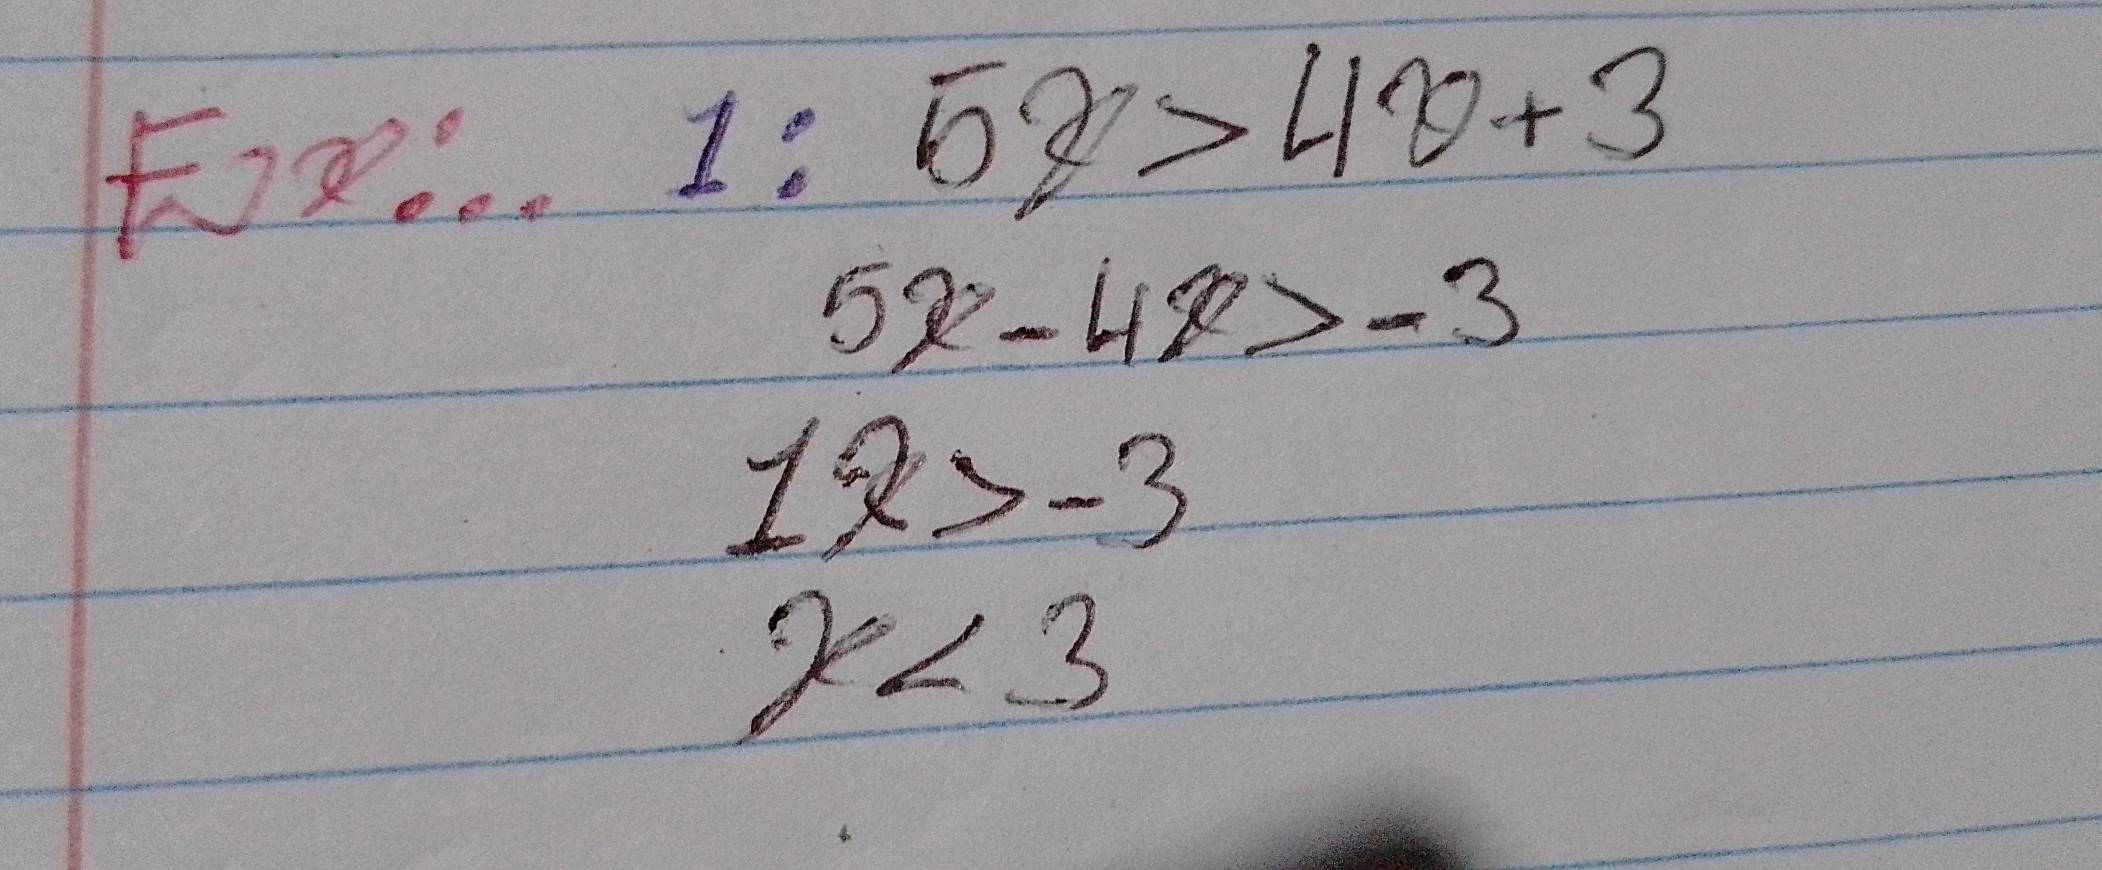 Ex:... 1: 5x > 4x + 3
5x - 4x > - 3
1x > - 3
x < 3